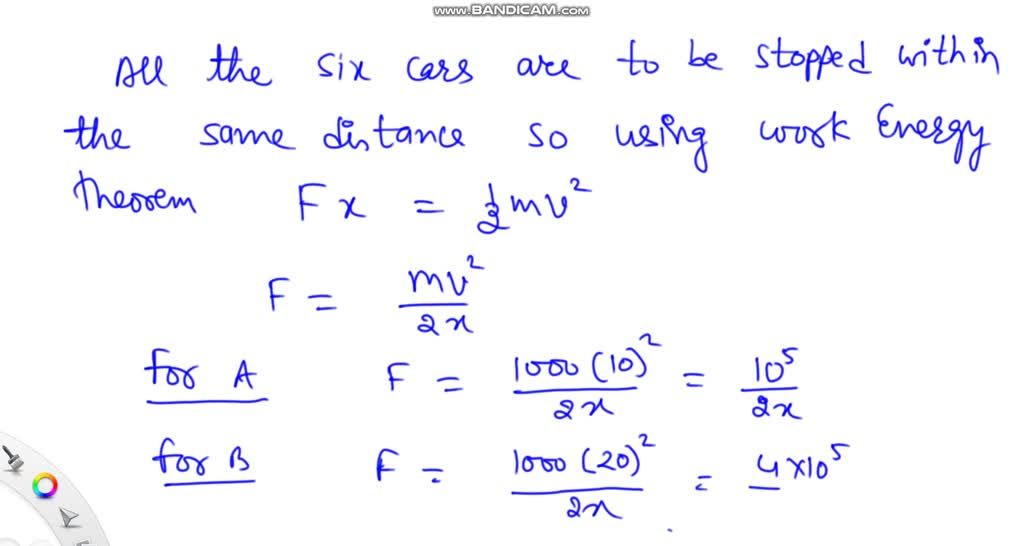 www.BANDICAM.com
All the six cars are to be stopped within
the same distance so using work Energy
theorem Fx = ½mv²
F = mv²/2x
for A F = 1000(10)²/2x = 10⁵/2x
for B F = 1000(20)²/2x = 4×10⁵